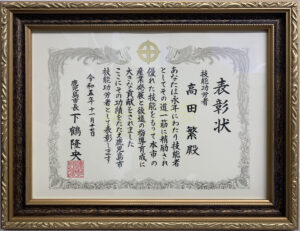 表彰状
技能功労者
高田 繁 殿
あなたは永年にわたり技能者
としてその道一筋に精励され
優れた技能をもって本市の
産業発展と後進の指導育成に
大きな貢献をされました
ここにその功績をたたえ鹿児島市
技能功労者として表彰します
令和五年十一月
鹿児島市長 下鶴隆央